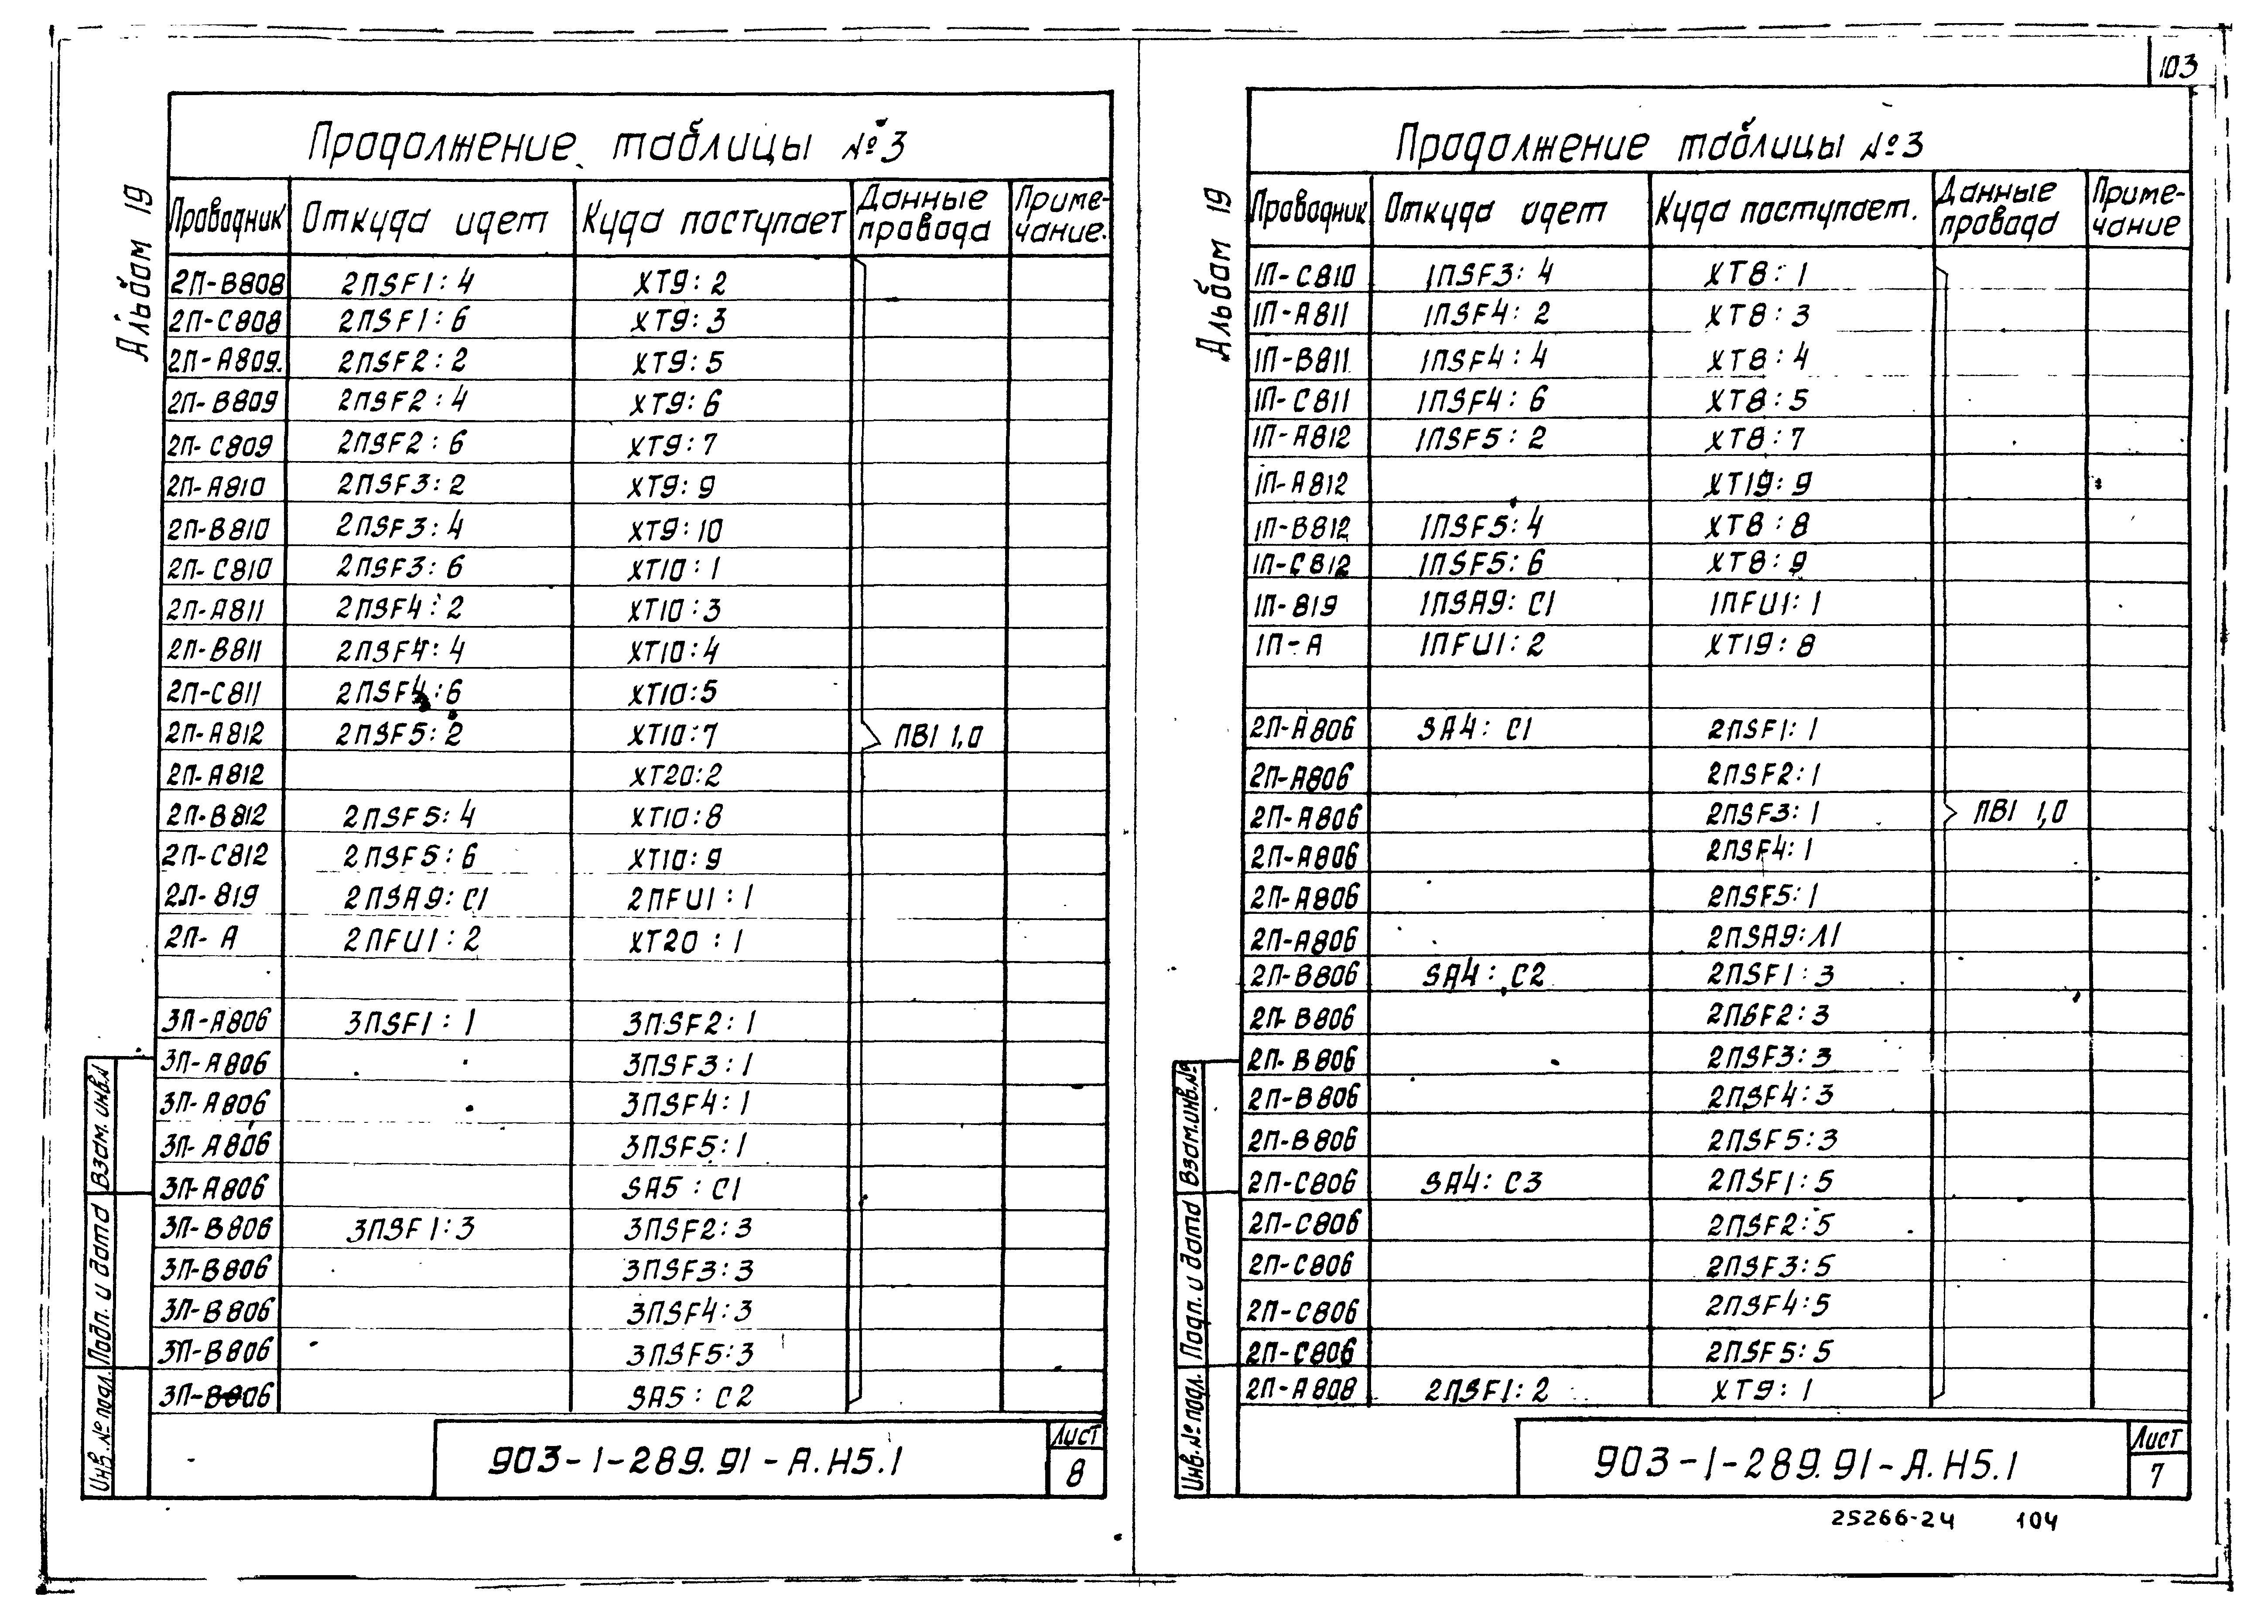 103
Альбом 19
Продолжение таблицы №3
Проводник Откуда идет Куда поступает Данные провода Приме-чание.
2П-В808 2ПSF1:4 XT9:2
2П-С808 2ПSF1:6 XT9:3
2П-А809. 2ПSF2:2 XT9:5
2П-В809 2ПSF2:4 XT9:6
2П-С809 2ПSF2:6 XT9:7
2П-А810 2ПSF3:2 XT9:9
2П-В810 2ПSF3:4 XT9:10
2П-С810 2ПSF3:6 XT10:1
2П-А811 2ПSF4:2 XT10:3
2П-В811 2ПSF4:4 XT10:4
2П-С811 2ПSF4:6 XT10:5
2П-А812 2ПSF5:2 XT10:7 ПВ1 1,0
2П-А812 XT20:2
2П-В812 2ПSF5:4 XT10:8
2П-С812 2ПSF5:6 XT10:9
2П-819 2ПSA9:C1 2ПFU1:1
2П-А 2ПFU1:2 XT20:1
3П-А806 3ПSF1:1 3ПSF2:1
3П-А806 3ПSF3:1
3П-А806 3ПSF4:1
3П-А806 3ПSF5:1
3П-А806 SA5:C1
3П-В806 3ПSF1:3 3ПSF2:3
3П-В806 3ПSF3:3
3П-В806 3ПSF4:3
3П-В806 3ПSF5:3
3П-В806 SA5:C2
Инв. № подл. Подп. и дата Взам. инв.№
903-1-289.91-А.Н5.1
Лист
8
Альбом 19
Продолжение таблицы №3
Проводник Откуда идет Куда поступает. Данные провода Приме-чание
1П-С810 1ПSF3:4 XT8:1
1П-А811 1ПSF4:2 XT8:3
1П-В811 1ПSF4:4 XT8:4
1П-С811 1ПSF4:6 XT8:5
1П-А812 1ПSF5:2 XT8:7
1П-А812 XT19:9
1П-В812 1ПSF5:4 XT8:8
1П-С812 1ПSF5:6 XT8:9
1П-819 1ПSA9:C1 1ПFU1:1
1П-А 1ПFU1:2 XT19:8
2П-А806 SA4:C1 2ПSF1:1
2П-А806 2ПSF2:1
2П-А806 2ПSF3:1 ПВ1 1,0
2П-А806 2ПSF4:1
2П-А806 2ПSF5:1
2П-А806 2ПSA9:Л1
2П-В806 SA4:C2 2ПSF1:3
2П-В806 2ПSF2:3
2П-В806 2ПSF3:3
2П-В806 2ПSF4:3
2П-В806 2ПSF5:3
2П-С806 SA4:C3 2ПSF1:5
2П-С806 2ПSF2:5
2П-С806 2ПSF3:5
2П-С806 2ПSF4:5
2П-С806 2ПSF5:5
2П-А808 2ПSF1:2 XT9:1
Инв. № подл. Подп. и дата Взам.инв.№
903-1-289.91-А.Н5.1
Лист
7
25266-24 104